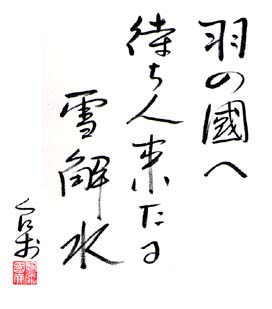 羽の國へ
待ち人来たる
雪解水